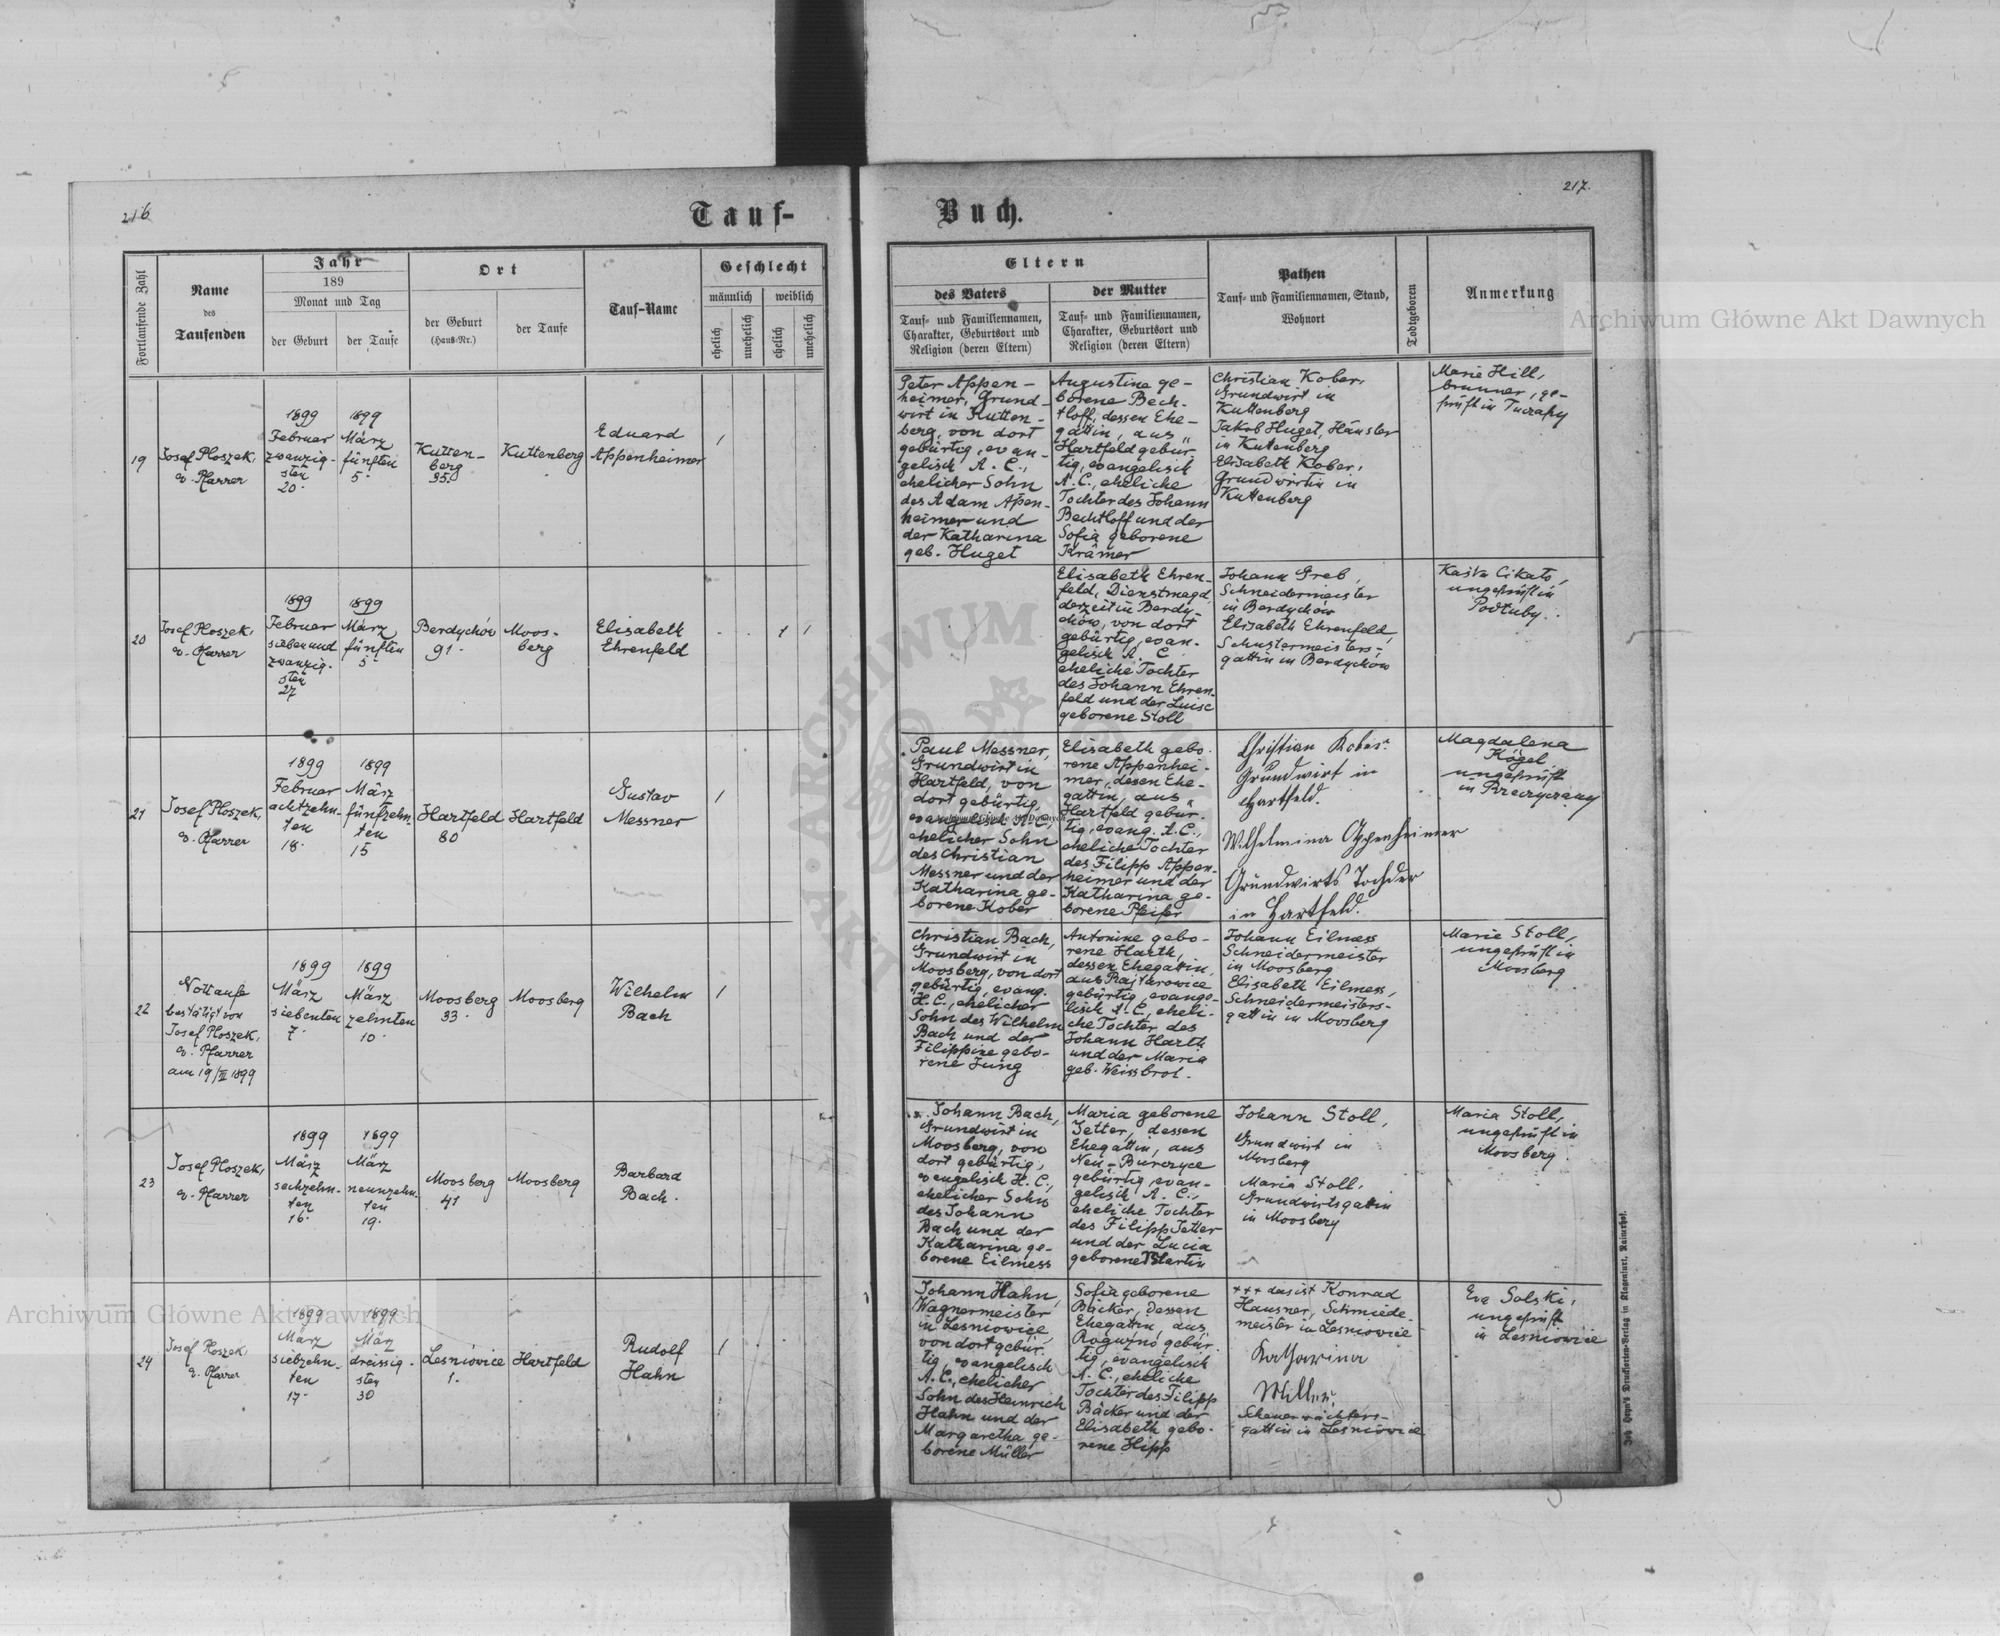 216
Tauf-
Fortlaufende Zahl
Name
des
Taufenden
Jahr
189
Monat und Tag
der Geburt
der Taufe
Ort
der Geburt
(Haus-Nr.)
der Taufe
Tauf-Name
Geschlecht
männlich
weiblich
ehelich
unehelich
ehelich
unehelich
19
Josef Ploszek,
ev. Pfarrer
1899
Februar
zwanzig-
sten
20.
1899
März
fünften
5.
Kutten-
berg
35.
Kuttenberg
Eduard
Appenheimer
1
20
Josef Ploszek,
ev. Pfarrer
1899
Februar
siebenund
zwanzig-
sten
27
1899
März
fünften
5.
Berdychów
91.
Moos-
berg
Elisabeth
Ehrenfeld
1 1
21
Josef Ploszek,
ev. Pfarrer
1899
Februar
achtzehn-
ten
18.
1899
März
fünfzehn-
ten
15
Hartfeld
80
Hartfeld
Gustav
Messner
1
22
Nottaufe
bestätigt von
Josef Ploszek,
ev. Pfarrer
am 19/III 1899
1899
März
siebenten
7.
1899
März
zehnten
10.
Moosberg
33.
Moosberg
Wilhelm
Bach
1
23
Josef Ploszek,
ev. Pfarrer
1899
März
sechzehn-
ten
16.
1899
März
neunzehn-
ten
19.
Moosberg
41
Moosberg
Barbara
Bach.
24
Josef Ploszek
ev. Pfarrer
1899
März
siebzehn-
ten
17.
1899
März
dreissig-
sten
30
Lesniowice
1.
Hartfeld
Rudolf
Hahn
1
217.
Buch.
Eltern
des Vaters
Tauf- und Familiennamen,
Charakter, Geburtsort und
Religion (deren Eltern)
der Mutter
Tauf- und Familiennamen,
Charakter, Geburtsort und
Religion (deren Eltern)
Pathen
Tauf- und Familiennamen, Stand,
Wohnort
Todtgeboren
Anmerkung
Peter Appen-
heimer, Grund-
wirt in Kutten-
berg, von dort
gebürtig, evan-
gelisch A. C.,
ehelicher Sohn
des Adam Apen-
heimer und
der Katharina
geb. Huget
Augustine ge-
borene Bech-
tloff, dessen Ehe-
gattin, aus
Hartfeld gebür-
tig, evangelisch
A. C., eheliche
Tochter des Johann
Bechtloff und der
Sofia geborene
Krämer
Christian Kober,
Grundwirt in
Kuttenberg
Jakob Huget, Häusler
in Kuttenberg
Elisabeth Kober,
Grundwirtin in
Kuttenberg
Marie Hill,
brunner, ge-
prüft in Tuczapy
Elisabeth Ehren-
feld, Dienstmagd,
derzeit in Berdy-
chów, von dort
gebürtig, evan-
gelisch A. C
eheliche Tochter
des Johann Ehren-
feld und der Luise
geborene Stoll
Johann Greb,
Schneidermeister
in Berdychów
Elisabeth Ehrenfeld,
Schustermeisters-
gattin in Berdychów
Kaśta Cikało,
ungeprüft in
Podłuby.
Paul Messner,
Grundwirt in
Hartfeld, von
dort gebürtig,
evangelisch A. C,
ehelicher Sohn
des Christian
Messner und der
Katharina ge-
borene Kober
Elisabeth gebo-
rene Appenhei-
mer, dessen Ehe-
gattin, aus
Hartfeld gebür-
tig, evang. A. C.,
eheliche Tochter
des Filipp Appen-
heimer und der
Katharina ge-
borene Pfeifer
Christian Kober.
Grundwirt in
Hartfeld.
Wilhelmina Oppenheimer
Grundwirts Tochder
in Hartfeld.
Magdalena
Kögel
ungeprüft
in
Christian Bach,
Grundwirt in
Moosberg, von dort
gebürtig, evang.
H. C., ehelicher
Sohn des Wilhelm
Bach und der
Filippine gebo-
rene Jung
Antonine gebo-
rene Harth,
dessen Ehegattin,
aus Rajtarowice
gebürtig, evange-
lisch A. C, eheli-
che Tochter des
Johann Harth
und der Maria
geb. Weissbrot.
Johann Eilmess
Schneidermeister
in Moosberg
Elisabeth Eilmess,
Schneidermeisters-
gattin in Moosberg
Marie Stoll,
ungeprüft in
Moosberg
Johann Bach,
Grundwirt in
Moosberg, von
dort gebürtig,
evangelisch H. C.,
ehelicher Sohn
des Johann
Bach und der
Katharina ge-
borene Eilmess
Maria geborene
Jetter, dessen
Ehegattin, aus
Neu-Burczyce
gebürtig, evan-
gelisch A. C.,
eheliche Tochter
des Filipp Jetter
und der Lucia
geborene Martin
Johann Stoll,
Grundwirt in
Moosberg
Maria Stoll,
Grundwirtsgattin
in Moosberg
Maria Stoll,
ungeprüft in
Moosberg
Johann Hahn,
Wagnermeister
in Lesniowice,
von dort gebür-
tig, evangelisch
A. C., ehelicher
Sohn des Heinrich
Hahn und der
Margaretha ge-
borene Müller
Sofia geborene
Bäcker, dessen
Ehegattin aus
Roguzno gebür-
tig, evangelisch
A. C., eheliche
Tochter des Filipp
Bäcker und der
Elisabeth gebo-
rene Hipp
+++ das ist Konrad
Hausner, Schmiede-
meister in Lesniowice
Katharina
Miller,
gattin in Lesniowice
Eva Solski,
ungeprüft
in Lesniowice
Archiwum Główne Akt Dawnych
Archiwum Główne Akt Dawnych
ARCHIWUM